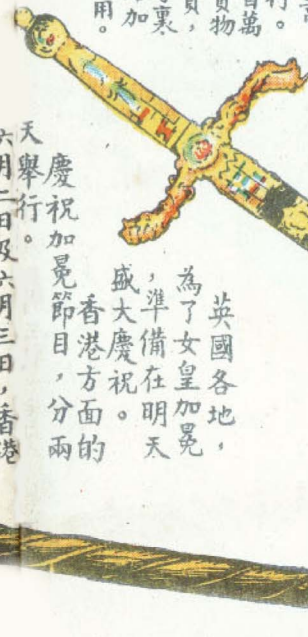 行。
百萬
物
，
裏
加
用。
英國各地，
為了女皇加冕
，準備在明天
盛大慶祝。
香港方面的
慶祝加冕節目，分兩
天舉行。
六月二日及六月三日，香港